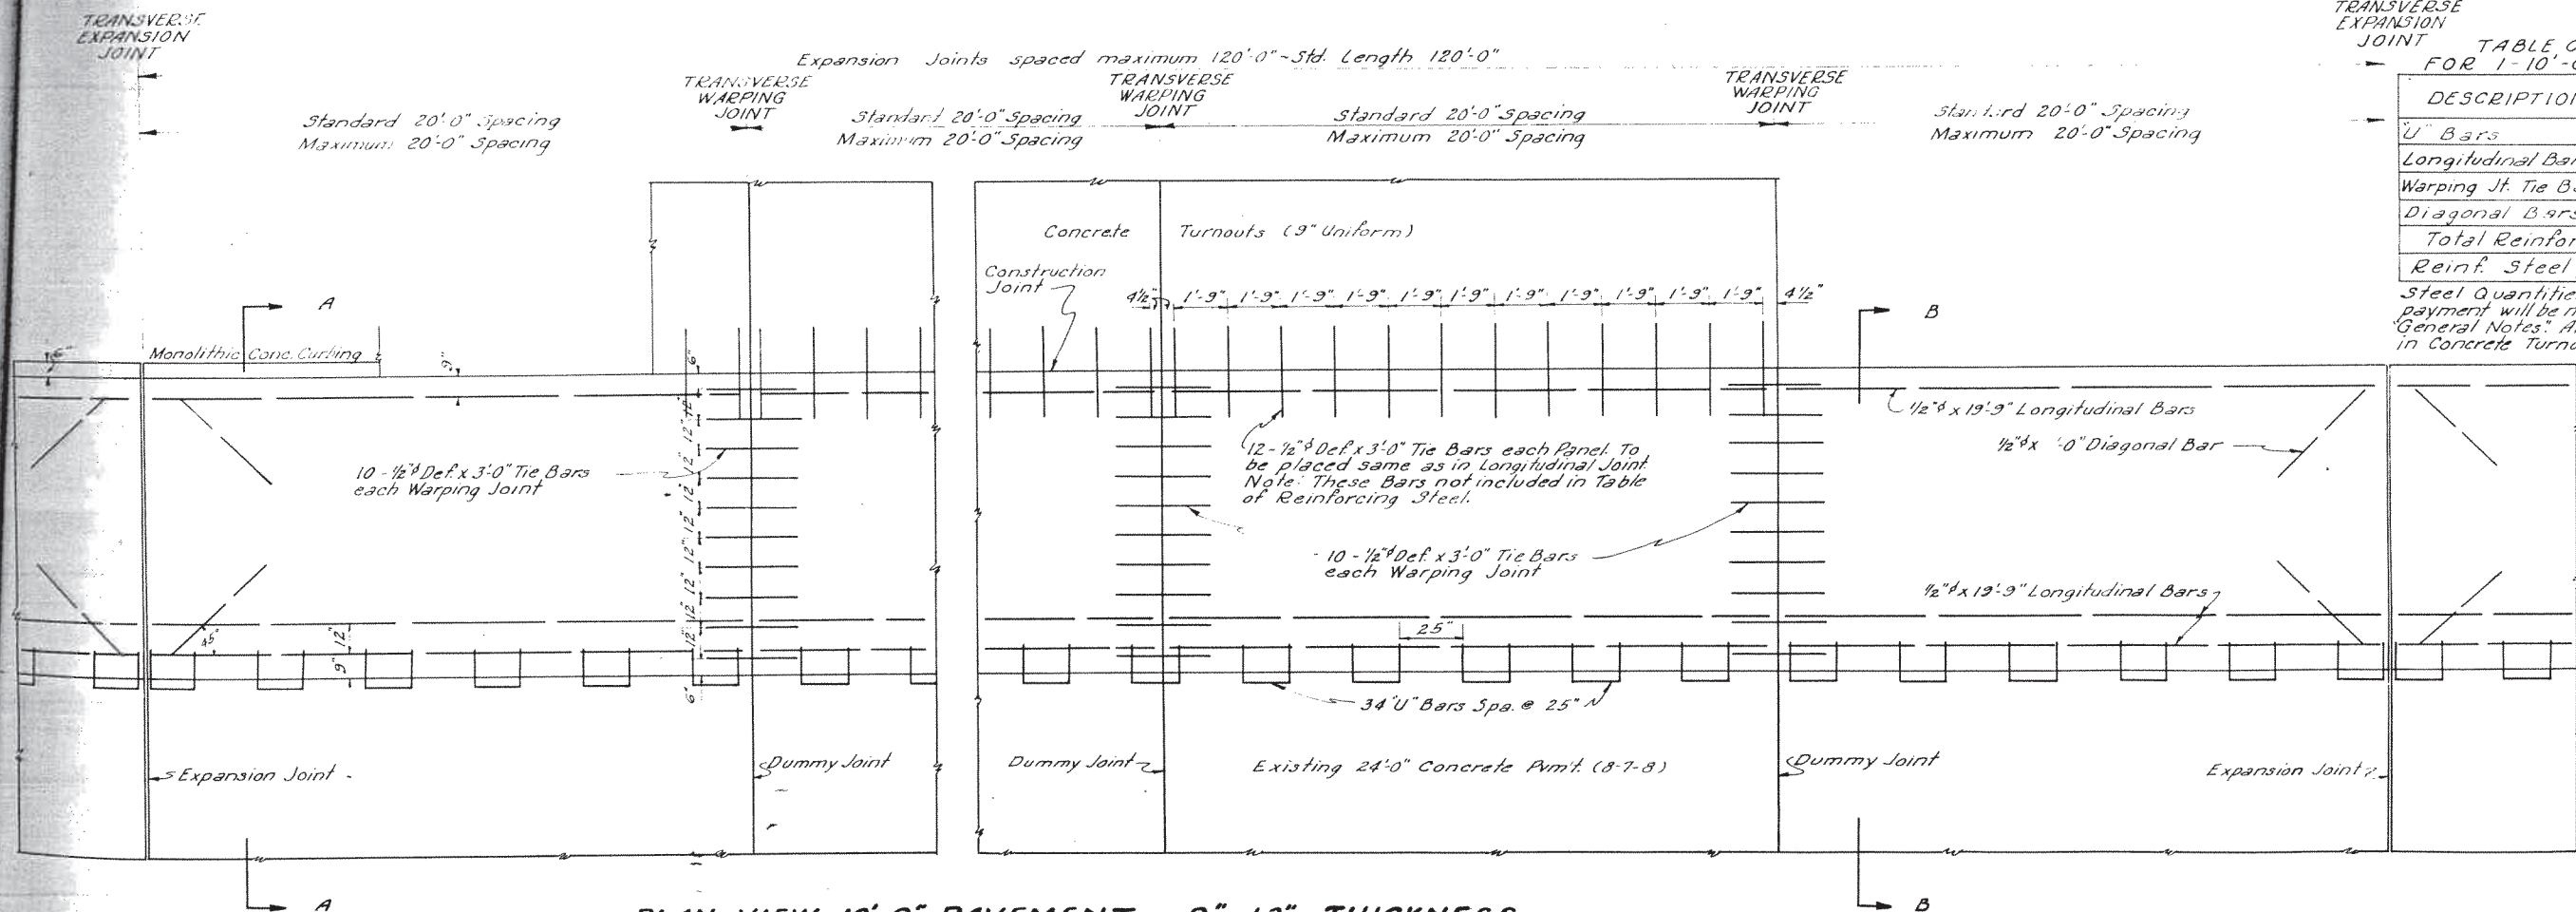 TRANSVERSE
EXPANSION
JOINT
Expansion Joints spaced maximum 120'-0" ~ Std. Length 120'-0"
TRANSVERSE
EXPANSION
JOINT
TRANSVERSE
WARPING
JOINT
TRANSVERSE
WARPING
JOINT
TRANSVERSE
WARPING
JOINT
Standard 20'-0" Spacing
Maximum 20'-0" Spacing
Standard 20'-0" Spacing
Maximum 20'-0" Spacing
Standard 20'-0" Spacing
Maximum 20'-0" Spacing
Standard 20'-0" Spacing
Maximum 20'-0" Spacing
TABLE O
FOR 1-10'-0
DESCRIPTION
"U" Bars
Longitudinal Bar
Warping Jt. Tie B
Diagonal Bars
Total Reinfor
Reinf. Steel
Steel Quantitie
payment will be
"General Notes". A
in Concrete Turno
Concrete Turnouts (9" Uniform)
Construction
Joint
4½" 1'-9" 1'-9" 1'-9" 1'-9" 1'-9" 1'-9" 1'-9" 1'-9" 1'-9" 1'-9" 1'-9" 4½"
A
B
6"
Monolithic Conc. Curbing
9"
6"
12"
12"
12"
12"
12"
12"
12"
12"
12"
6"
½"ϕ x 19'-9" Longitudinal Bars
½"ϕ x '-0" Diagonal Bar
10 - ½"ϕ Def. x 3'-0" Tie Bars
each Warping Joint
12 - ½"ϕ Def. x 3'-0" Tie Bars each Panel. To
be placed same as in Longitudinal Joint.
Note: These Bars not included in Table
of Reinforcing Steel.
10 - ½"ϕ Def. x 3'-0" Tie Bars
each Warping Joint
½"ϕ x 19'-9" Longitudinal Bars
45°
12"
9"
25"
34 "U" Bars Spa. @ 25"
Expansion Joint
Dummy Joint
Dummy Joint
Existing 24'-0" Concrete Pvm't. (8-7-8)
Dummy Joint
Expansion Joint
A
B
PLAN VIEW 10'-0" PAVEMENT 9"-12" THICKNESS